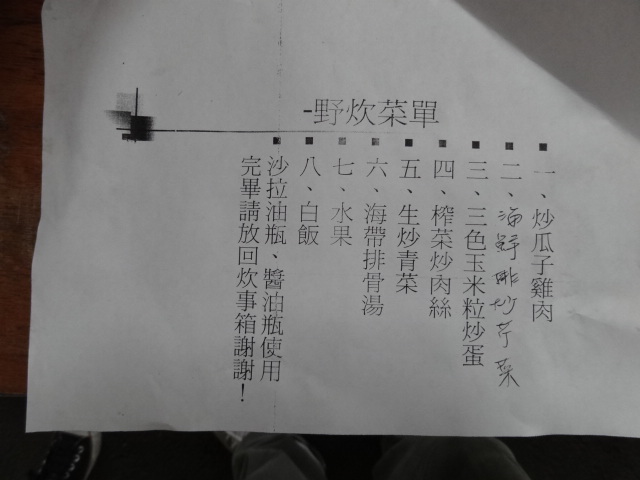 -野炊菜單
一、炒瓜子雞肉
二、海野啡炒芹菜
三、三色玉米粒炒蛋
四、榨菜炒肉絲
五、生炒青菜
六、海帶排骨湯
七、水果
八、白飯
沙拉油瓶、醬油瓶使用
完畢請放回炊事箱謝謝！